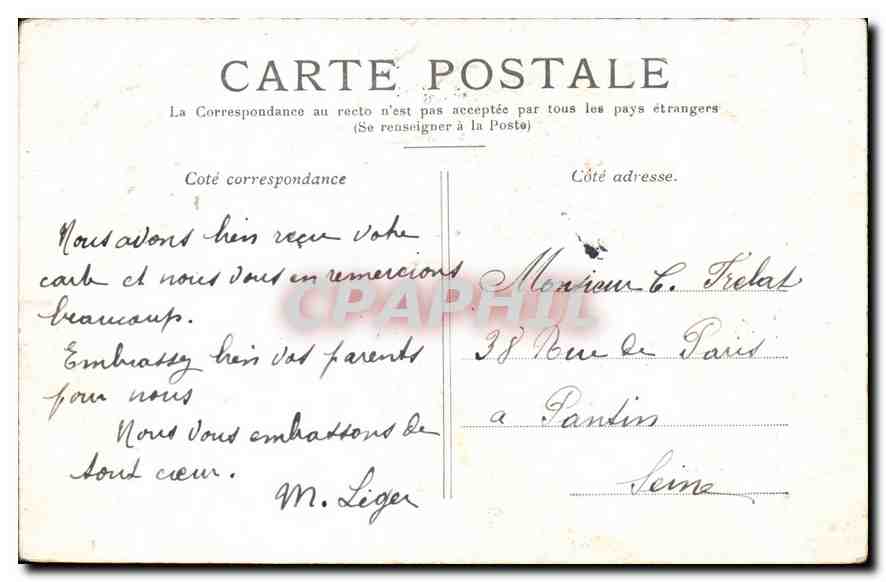 CARTE POSTALE
La Correspondance au recto n'est pas acceptée par tous les pays étrangers
(Se renseigner à la Poste)
Coté correspondance
Nous avons bien reçu votre
carte et nous vous en remercions
beaucoup.
Embrassez bien vos parents
pour nous
Nous vous embrassons de
tout cœur.
M. Léger
Côté adresse.
Monsieur C. Trelat
38 Rue de Paris
a Pantin
Seine
CPAPHIL